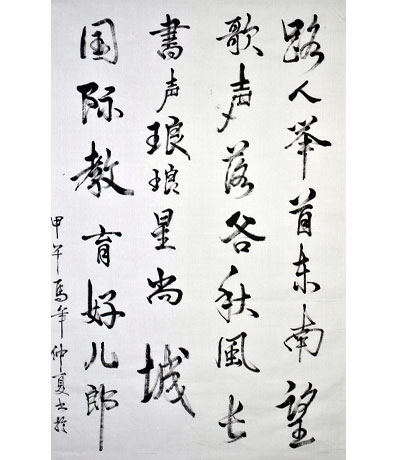 路人举首东南望
歌声落谷秋风长
書声琅琅星尚城
国际教育好儿郎
甲午马年仲夏书於